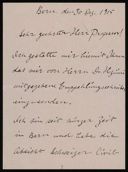 Bern den 30 Dez. 1915
Sehr geehrter Herr Professor!
Ich gestatte mir hiemit Ihnen
das mir von Herrn Dr.
mitgegebene Empfehlungsschreiben
einzusenden.
Ich bin seit einiger Zeit
in Bern und habe die
Absicht Schweizer Civil-